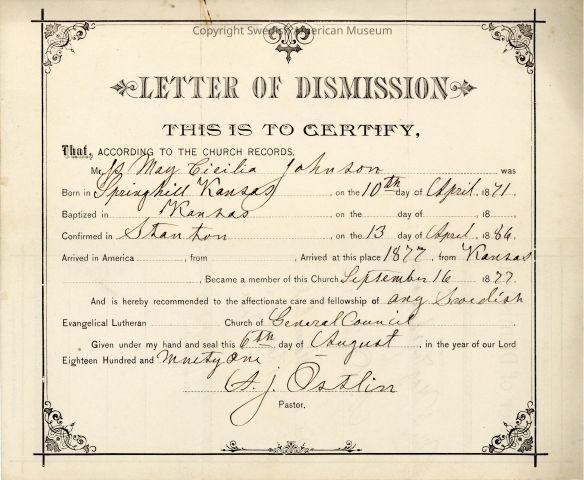 Copyright Swedish American Museum
LETTER OF DISMISSION
THIS IS TO CERTIFY,
That, ACCORDING TO THE CHURCH RECORDS,
Miss May Cicilia Johnson was
Born in Springhill Kansas, on the 10th day of April, 1871.
Baptized in Kansas, on the day of , 18 .
Confirmed in Stanton, on the 13 day of April 1886.
Arrived in America , from , Arrived at this place 1877, from Kansas
, Became a member of this Church September 16 1877.
And is hereby recommended to the affectionate care and fellowship of any Swedish
Evangelical Lutheran Church of General Council
Given under my hand and seal this 6th day of August, in the year of our Lord
Eighteen Hundred and Ninety One
A. J. Östlin
Pastor.